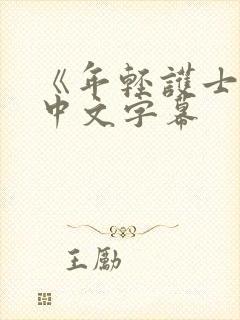 《年轻護士
中文字幕
王勵